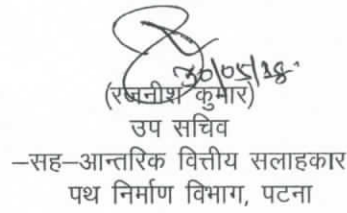 30/05/18
(रजनीश कुमार)
उप सचिव
–सह–आन्तरिक वित्तीय सलाहकार
पथ निर्माण विभाग, पटना